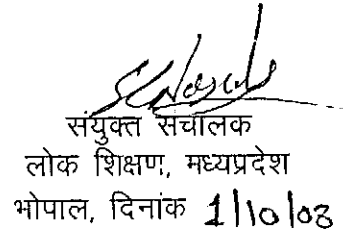 संयुक्त संचालक
लोक शिक्षण, मध्यप्रदेश
भोपाल, दिनांक 1/10/08